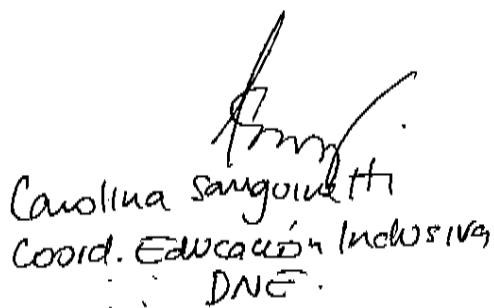 Carolina Sanguinetti
Coord. Educación Inclusiva
DNE.